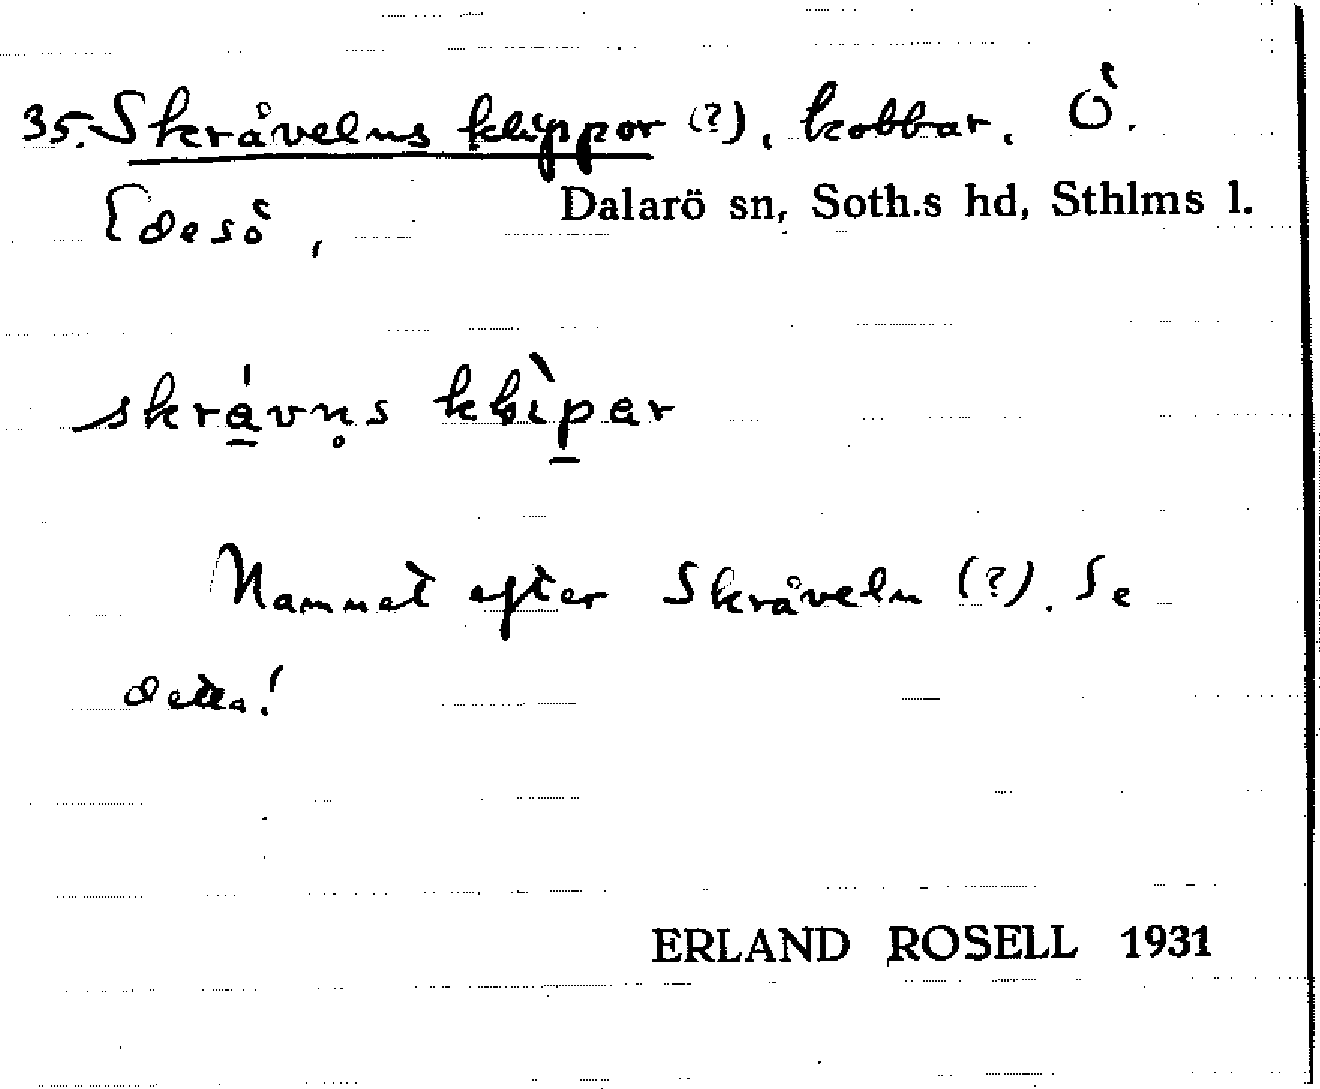 35. Skråvelns klippor (?), kobbar. Ö.
Edesö, Dalarö sn, Soth.s hd, Sthlms l.
skrávn̥s klìpar
Namnet efter Skråveln (?). Se
detta!
ERLAND ROSELL 1931